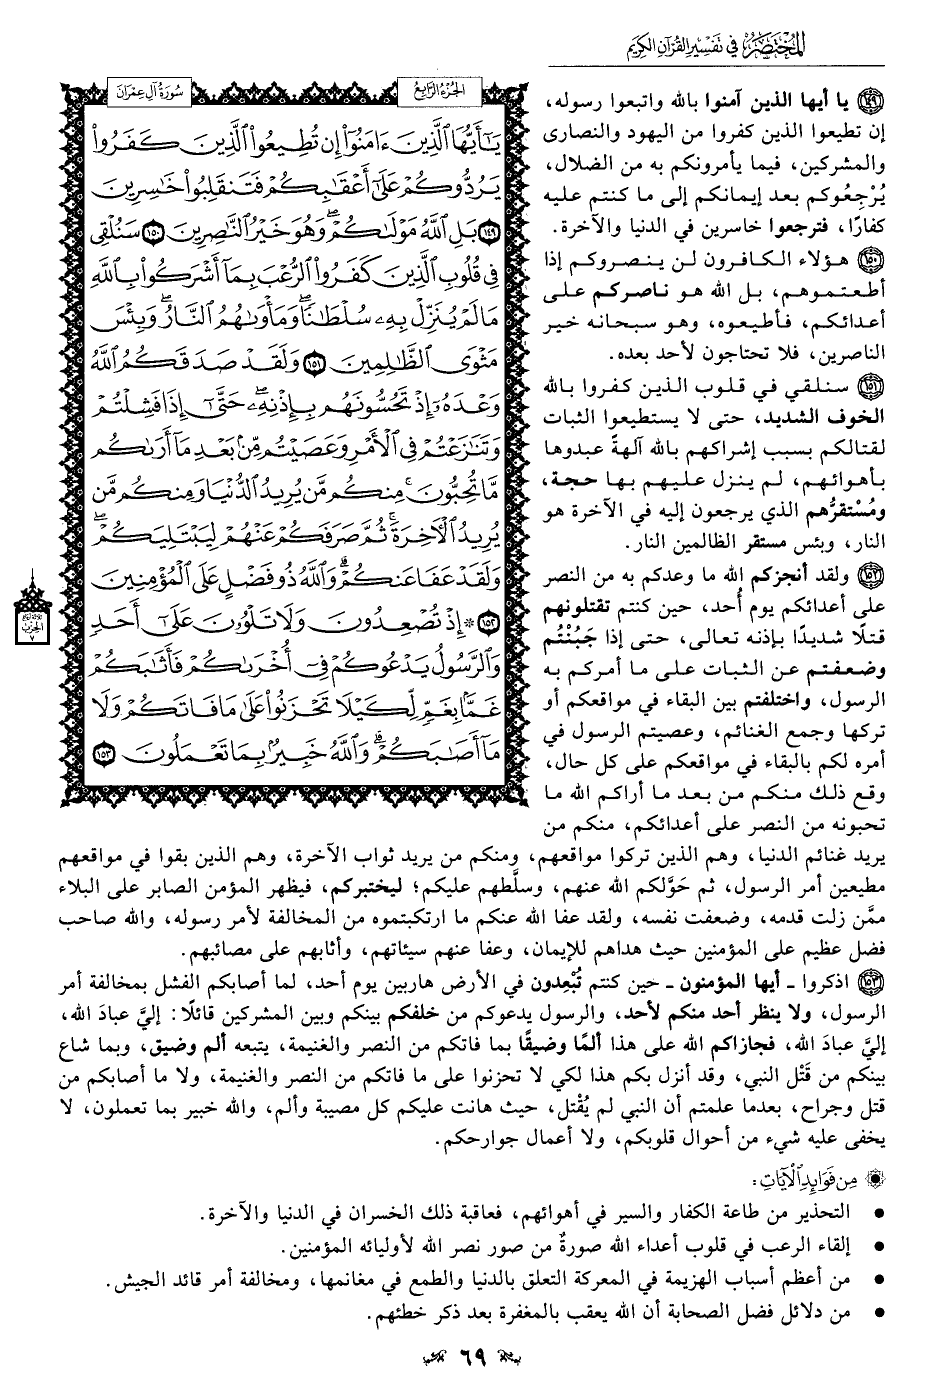 المختصر في تفسير القرآن الكريم
الجزء الرابع
سورة آل عمران
يَٰٓأَيُّهَا ٱلَّذِينَ ءَامَنُوٓاْ إِن تُطِيعُواْ ٱلَّذِينَ كَفَرُواْ
يَرُدُّوكُمْ عَلَىٰٓ أَعْقَٰبِكُمْ فَتَنقَلِبُواْ خَٰسِرِينَ
١٤٩ بَلِ ٱللَّهُ مَوْلَىٰكُمْ ۖ وَهُوَ خَيْرُ ٱلنَّٰصِرِينَ ١٥٠ سَنُلْقِى
فِى قُلُوبِ ٱلَّذِينَ كَفَرُواْ ٱلرُّعْبَ بِمَآ أَشْرَكُواْ بِٱللَّهِ
مَا لَمْ يُنَزِّلْ بِهِۦ سُلْطَٰنًا ۖ وَمَأْوَىٰهُمُ ٱلنَّارُ ۚ وَبِئْسَ
مَثْوَى ٱلظَّٰلِمِينَ ١٥١ وَلَقَدْ صَدَقَكُمُ ٱللَّهُ
وَعْدَهُۥٓ إِذْ تَحُسُّونَهُم بِإِذْنِهِۦ ۖ حَتَّىٰٓ إِذَا فَشِلْتُمْ
وَتَنَٰزَعْتُمْ فِى ٱلْأَمْرِ وَعَصَيْتُم مِّنۢ بَعْدِ مَآ أَرَىٰكُم
مَّا تُحِبُّونَ ۚ مِنكُم مَّن يُرِيدُ ٱلدُّنْيَا وَمِنكُم مَّن
يُرِيدُ ٱلْأَخِرَةَ ۚ ثُمَّ صَرَفَكُمْ عَنْهُمْ لِيَبْتَلِيَكُمْ ۖ
وَلَقَدْ عَفَا عَنكُمْ ۗ وَٱللَّهُ ذُو فَضْلٍ عَلَى ٱلْمُؤْمِنِينَ
١٥٢ ۞ إِذْ تُصْعِدُونَ وَلَا تَلْوُۥنَ عَلَىٰٓ أَحَدٍ
وَٱلرَّسُولُ يَدْعُوكُمْ فِىٓ أُخْرَىٰكُمْ فَأَثَٰبَكُمْ
غَمًّۢا بِغَمٍّ لِّكَيْلَا تَحْزَنُواْ عَلَىٰ مَا فَاتَكُمْ وَلَا
مَآ أَصَٰبَكُمْ ۗ وَٱللَّهُ خَبِيرٌۢ بِمَا تَعْمَلُونَ ١٥٣
الحزب
٧
١٤٩ يا أيها الذين آمنوا بالله واتبعوا رسوله،
إن تطيعوا الذين كفروا من اليهود والنصارى
والمشركين، فيما يأمرونكم به من الضلال،
يُرْجِعُوكم بعد إيمانكم إلى ما كنتم عليه
كفارًا، فترجعوا خاسرين في الدنيا والآخرة.
١٥٠ هؤلاء الكافرون لن ينصروكم إذا
أطعتموهم، بل الله هو ناصركم على
أعدائكم، فأطيعوه، وهو سبحانه خير
الناصرين، فلا تحتاجون لأحد بعده.
١٥١ سنلقي في قلوب الذين كفروا بالله
الخوف الشديد، حتى لا يستطيعوا الثبات
لقتالكم بسبب إشراكهم بالله آلهةً عبدوها
بأهوائهم، لم ينزل عليهم بها حجة،
ومُسْتقرُّهم الذي يرجعون إليه في الآخرة هو
النار، وبئس مستقر الظالمين النار.
١٥٢ ولقد أنجزكم الله ما وعدكم به من النصر
على أعدائكم يوم أُحد، حين كنتم تقتلونهم
قتلًا شديدًا بإذنه تعالى، حتى إذا جَبُنْتُم
وضعفتم عن الثبات على ما أمركم به
الرسول، واختلفتم بين البقاء في مواقعكم أو
تركها وجمع الغنائم، وعصيتم الرسول في
أمره لكم بالبقاء في مواقعكم على كل حال،
وقع ذلك منكم من بعد ما أراكم الله ما
تحبونه من النصر على أعدائكم، منكم من
يريد غنائم الدنيا، وهم الذين تركوا مواقعهم، ومنكم من يريد ثواب الآخرة، وهم الذين بقوا في مواقعهم
مطيعين أمر الرسول، ثم حَوَّلكم الله عنهم، وسلَّطهم عليكم؛ ليختبركم، فيظهر المؤمن الصابر على البلاء
ممَّن زلت قدمه، وضعفت نفسه، ولقد عفا الله عنكم ما ارتكبتموه من المخالفة لأمر رسوله، والله صاحب
فضل عظيم على المؤمنين حيث هداهم للإيمان، وعفا عنهم سيئاتهم، وأثابهم على مصائبهم.
١٥٣ اذكروا - أيها المؤمنون - حين كنتم تُبْعِدون في الأرض هاربين يوم أحد، لما أصابكم الفشل بمخالفة أمر
الرسول، ولا ينظر أحد منكم لأحد، والرسول يدعوكم من خلفكم بينكم وبين المشركين قائلًا: إليَّ عبادَ الله،
إليَّ عبادَ الله، فجازاكم الله على هذا ألمًا وضيقًا بما فاتكم من النصر والغنيمة، يتبعه ألم وضيق، وبما شاع
بينكم من قَتْل النبي، وقد أنزل بكم هذا لكي لا تحزنوا على ما فاتكم من النصر والغنيمة، ولا ما أصابكم من
قتل وجراح، بعدما علمتم أن النبي لم يُقْتل، حيث هانت عليكم كل مصيبة وألم، والله خبير بما تعملون، لا
يخفى عليه شيء من أحوال قلوبكم، ولا أعمال جوارحكم.
مِن فَوَائِدِ ٱلْآيَاتِ:
• التحذير من طاعة الكفار والسير في أهوائهم، فعاقبة ذلك الخسران في الدنيا والآخرة.
• إلقاء الرعب في قلوب أعداء الله صورةٌ من صور نصر الله لأوليائه المؤمنين.
• من أعظم أسباب الهزيمة في المعركة التعلق بالدنيا والطمع في مغانمها، ومخالفة أمر قائد الجيش.
• من دلائل فضل الصحابة أن الله يعقب بالمغفرة بعد ذكر خطئهم.
٦٩